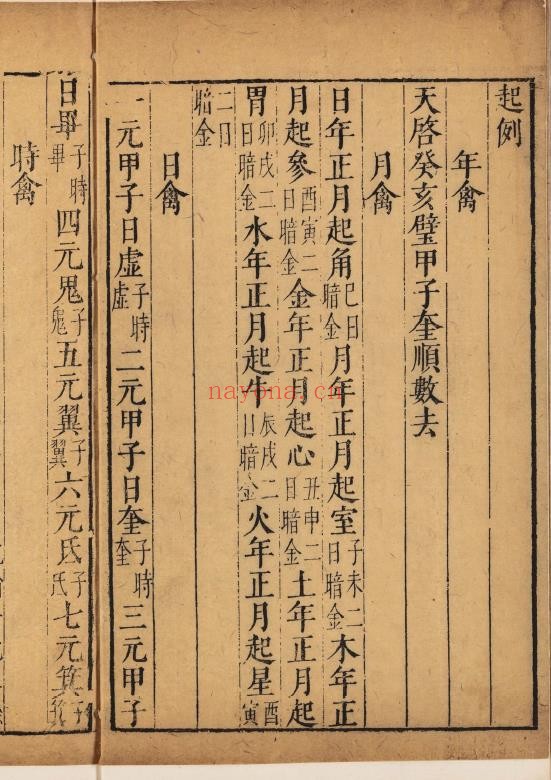 起例
年禽
天啓癸亥璧甲子奎順數去
月禽
日年正月起角巳日暗金月年正月起室子未二日暗金木年正
月起參酉寅二日暗金金年正月起心丑申二日暗金土年正月起
胃卯戌二日暗金水年正月起牛辰戌二日暗金火年正月起星酉寅
二日暗金
日禽
一元甲子日虛子時虛二元甲子日奎子時奎三元甲子
日畢子時畢四元鬼子鬼五元翼子翼六元氐子氐七元箕子箕
時禽
nayona.cn